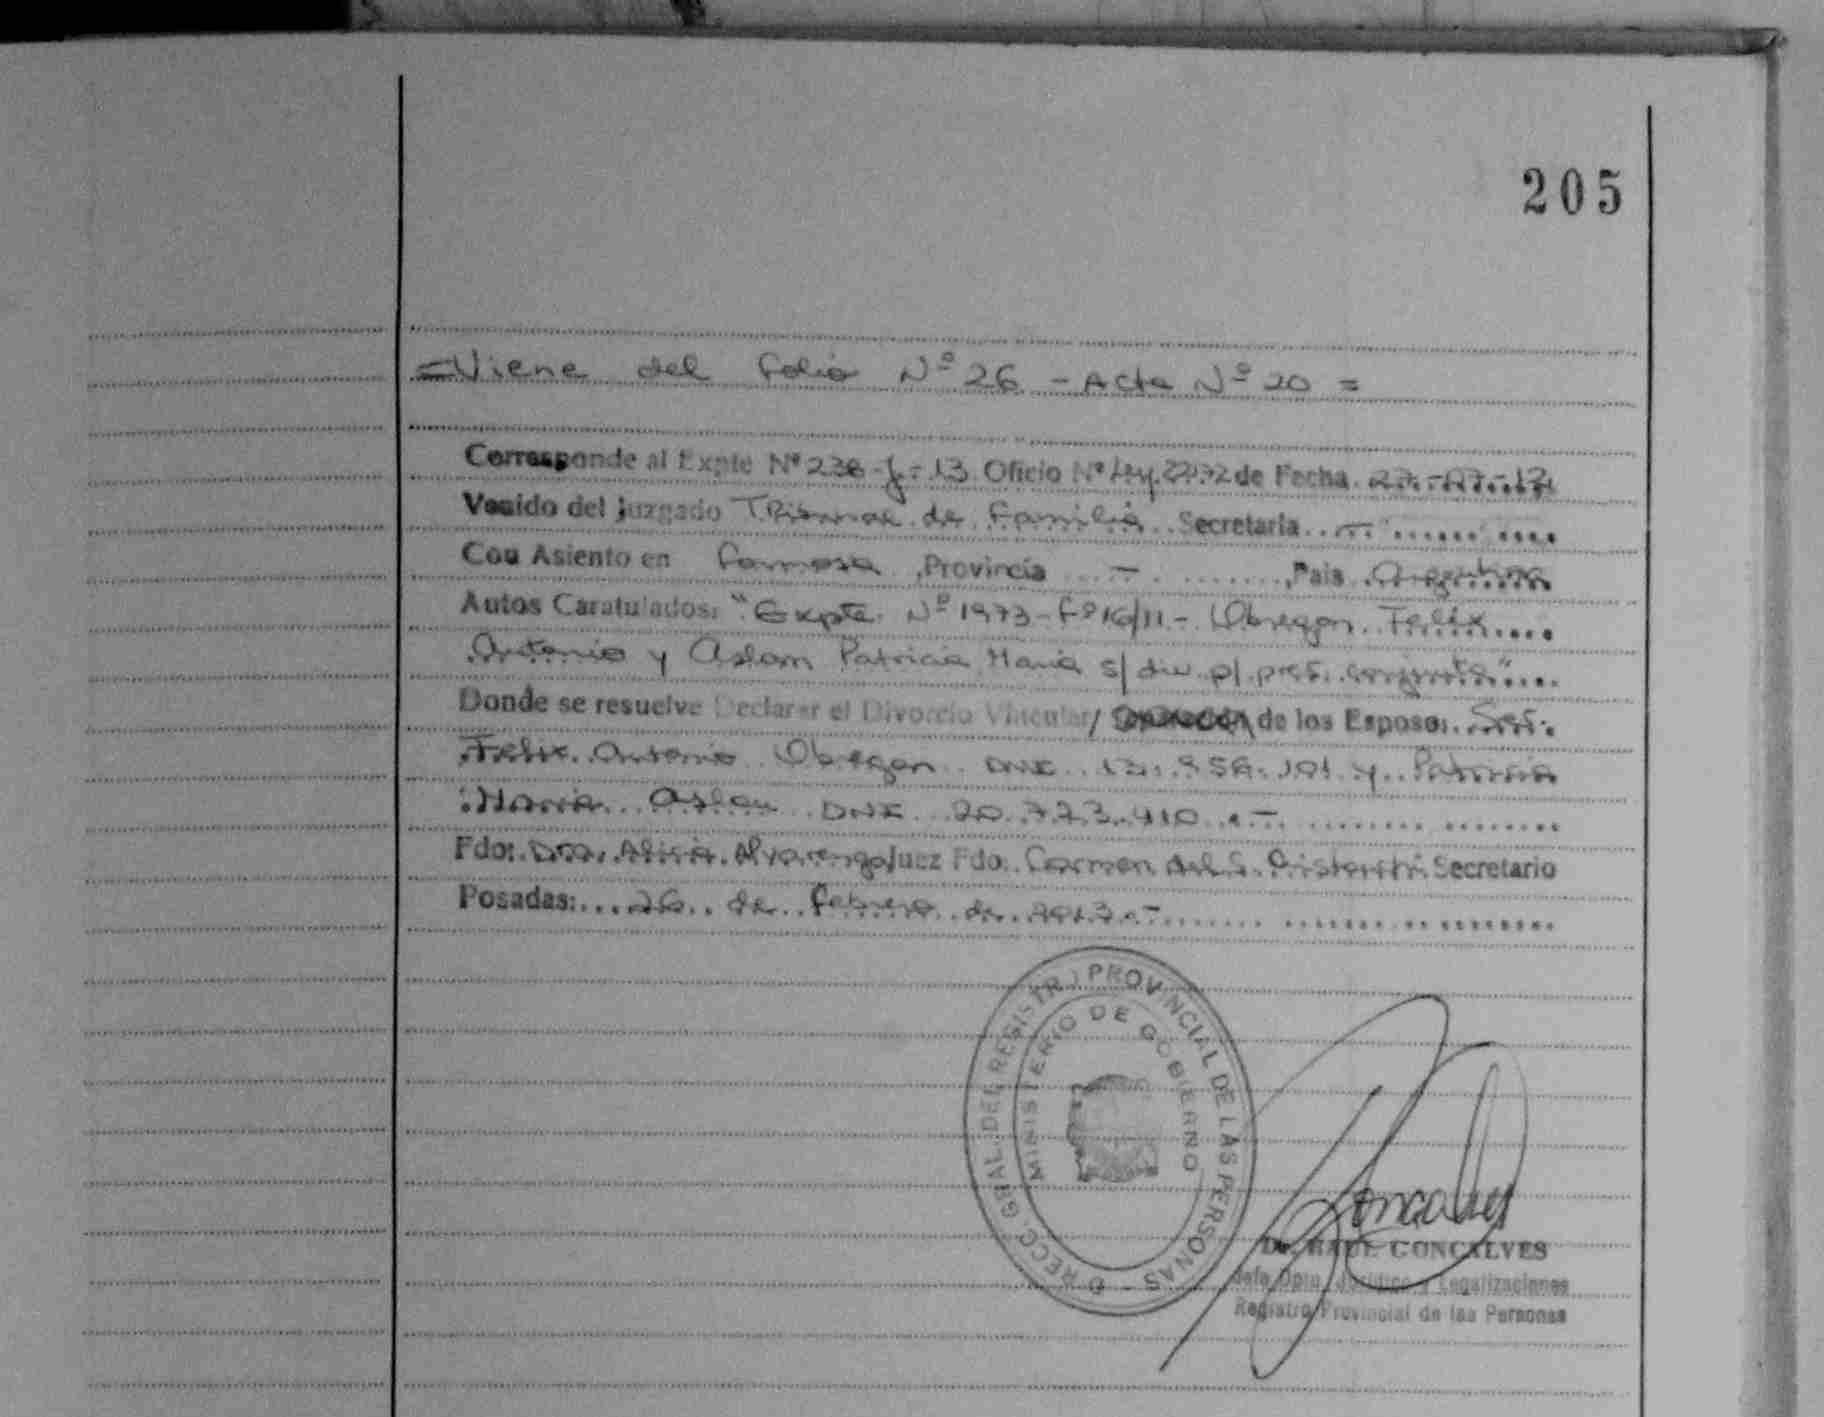 205
=Viene del folio Nº 26 - Acta Nº 20 =
Corresponde al Expte Nº 238-J-13 Oficio Nº Ley 22172 de Fecha
Venido del juzgado Tribunal de Familia Secretaria -
Con Asiento en Formosa, Provincia -, Pais Argentina
Autos Caratulados: "Expte. Nº 1973-Fº16/11- Obregon Felix
Antonio y Aslam Patricia Maria s/ div. p/ pres. conjunta"
Donde se resuelve Declarar el Divorcio Vincular / de los Esposo: Sres.
Felix Antonio Obregon DNI y Patricia
Maria DNI 20.723.410.-
Fdo: Dra. Alicia Alvarenga Juez Fdo: Carmen del Secretario
Posadas: 26 de Febrero de 2013.-
DIRECC. GRAL. DEL REGISTRO PROVINCIAL DE LAS PERSONAS -
MINISTERIO DE GOBIERNO
Goncalves
Dr. RAUL GONCALVES
Jefe Dpto. Jurídico y Legalizaciones
Registro Provincial de las Personas